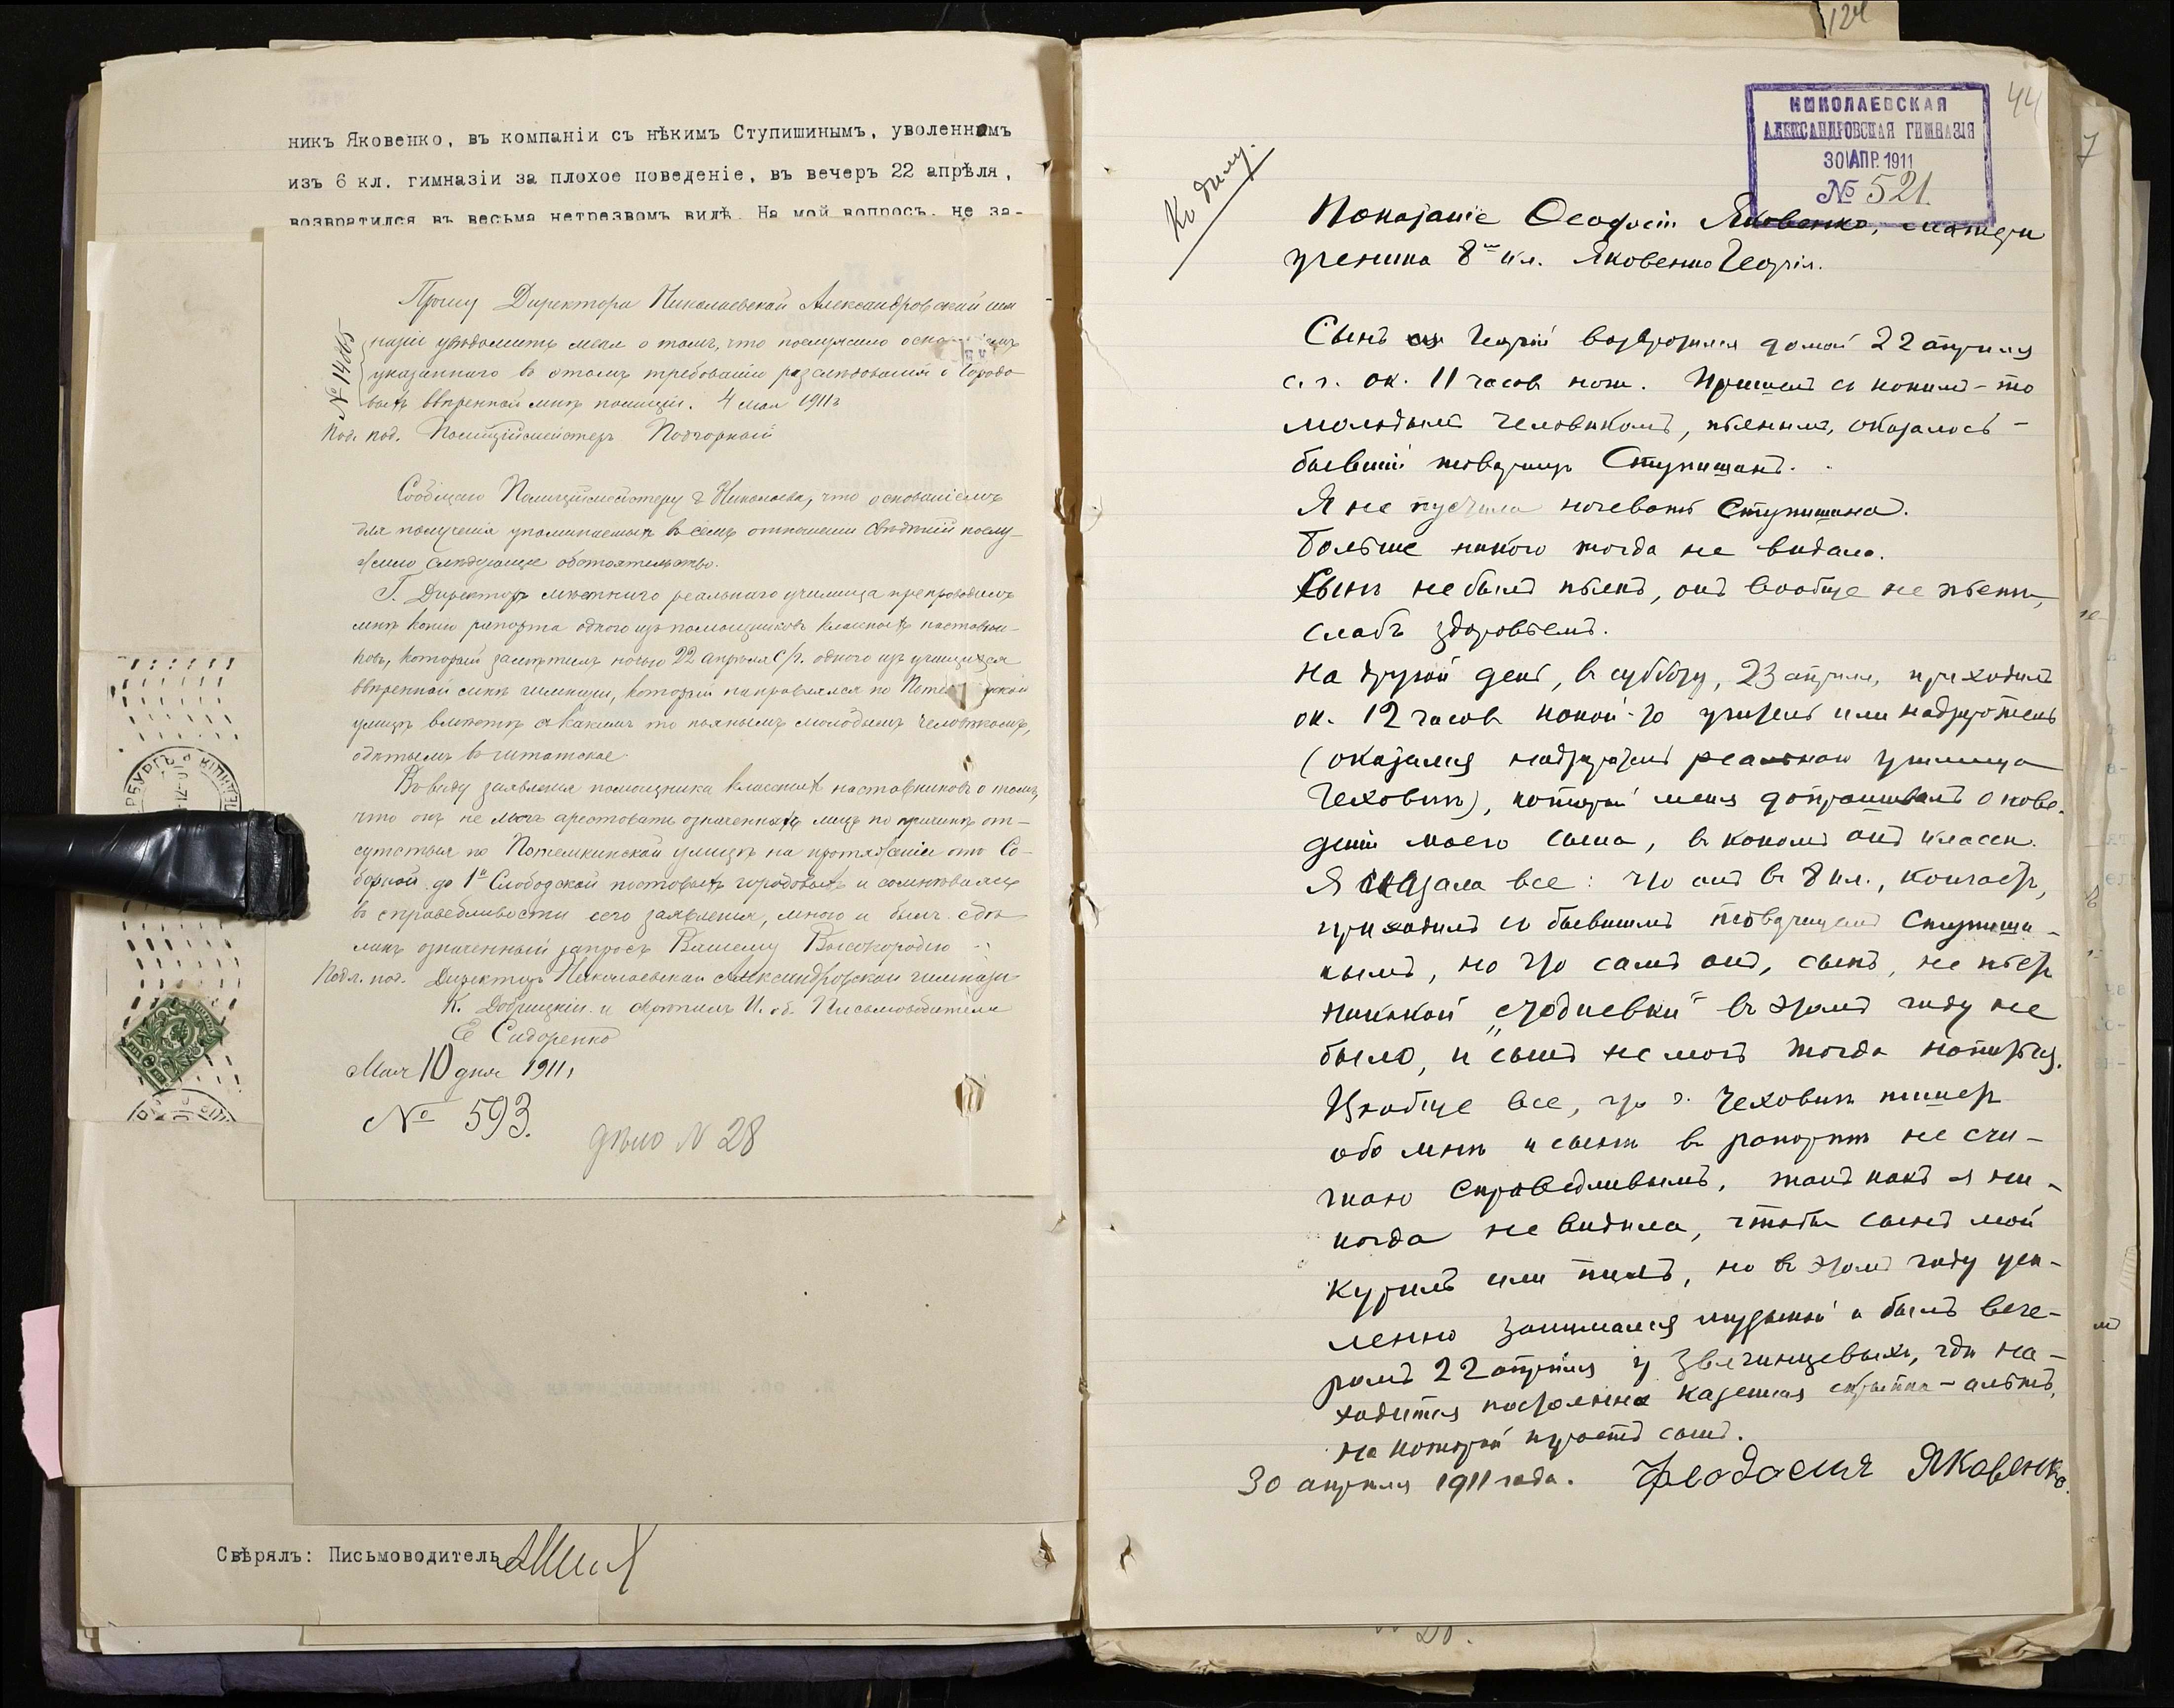 никъ Яковенко, въ компаніи съ нѣкимъ Ступишинымъ, уволеннымъ
изъ 6 кл. гимназіи за плохое поведеніе, въ вечеръ 22 апрѣля,
возвратился въ весьма нетрезвомъ видѣ. На мой вопросъ, не за-
№ 14685
Прошу Директора Николаевской Александровской гим
назіи увѣдомить меня о томъ, что послужило основаніемъ
указаннаго въ этомъ требованіи разслѣдованія о Городо
выхъ ввѣренной мнѣ полиціи. 4 мая 1911 г
Под. под. Полиціймейстеръ Подгорный
Сообщаю Полиціймейстеру г Николаева, что основаніемъ
для полученія упоминаемыхъ въ семъ отношеніи свѣдѣній послу-
жило слѣдующее обстоятельство.
Г. Директоръ мѣстнаго реальнаго училища препроводилъ
мнѣ копію рапорта одного изъ помощниковъ классныхъ наставни-
ковъ, который замѣтилъ ночью 22 апрѣля с/г. одного изъ учащихся
ввѣренной мнѣ гимназіи, который направлялся по
улицѣ вмѣстѣ съ какимъ то пьянымъ молодымъ человѣкомъ,
одѣтымъ въ штатское
Въ виду заявленія помощника классныхъ наставниковъ о томъ,
что онъ не могъ арестовать означенныхъ лицъ по причинѣ от-
сутствія по Потемкинской улицѣ на протяженіи отъ Со-
борной до 1й Слободской постовыхъ городовыхъ и сомнѣваясь
въ справедливости сего заявленія, мною и былъ сдѣ
ланъ означенный запросъ Вашему Высокородію
Подл. под. Директоръ Николаевской Александровской гимназіи
К. Добрицкій и скрѣпилъ И. об. Письмоводителя
Е Сидоренко
Мая 10 дня 1911 г
№ 593.
дѣло № 28
Свѣрялъ: Письмоводитель
124
44
7
НИКОЛАЕВСКАЯ
АЛЕКСАНДРОВСКАЯ ГИМНАЗІЯ
30 АПР. 1911
№ 521.
Къ дѣлу.
Показаніе Ѳеодосіи Яковенко, матери
ученика 8го кл. Яковенко Георгія.
Сынъ Георгій возвратился домой 22 апрѣля
с. г. ок. 11 часовъ ночи. Пришелъ съ какимъ-то
молодымъ человѣкомъ, пьянымъ, оказалось -
бывшій товарищъ Ступишинъ.
Я не пустила ночевать Ступишина.
Больше никого тогда не видала.
Сынъ не былъ пьянъ, онъ вообще не пьетъ,
слабъ здоровьемъ.
На другой день, въ субботу, 23 апрѣля, приходилъ
ок. 12 часовъ какой-то учитель или надзиратель
(оказался надзиратель реальнаго училища
Чеховичъ), который меня допрашивалъ о пове-
деніи моего сына, въ какомъ онъ классѣ.
Я сказала все: что онъ въ 8 кл., кончаетъ,
приходилъ съ бывшимъ товарищемъ Ступиши-
нымъ, но что самъ онъ, сынъ, не пьетъ
никакой „студневки" въ этомъ году не
было, и сынъ не могъ тогда напиться.
Вообще все, что г. Чеховичъ пишетъ
обо мнѣ и сынѣ въ рапортѣ не счи-
таю справедливымъ, такъ какъ я ни-
когда не видѣла, чтобы сынъ мой
курилъ или пилъ, но въ этомъ году уси-
ленно занимался музыкой и былъ вече-
ромъ 22 апрѣля у Звягинцевыхъ, гдѣ на-
ходится постоянно казенная скрипка-альтъ,
на которой играетъ сынъ.
30 апрѣля 1911 года. Феодосия Яковенко.